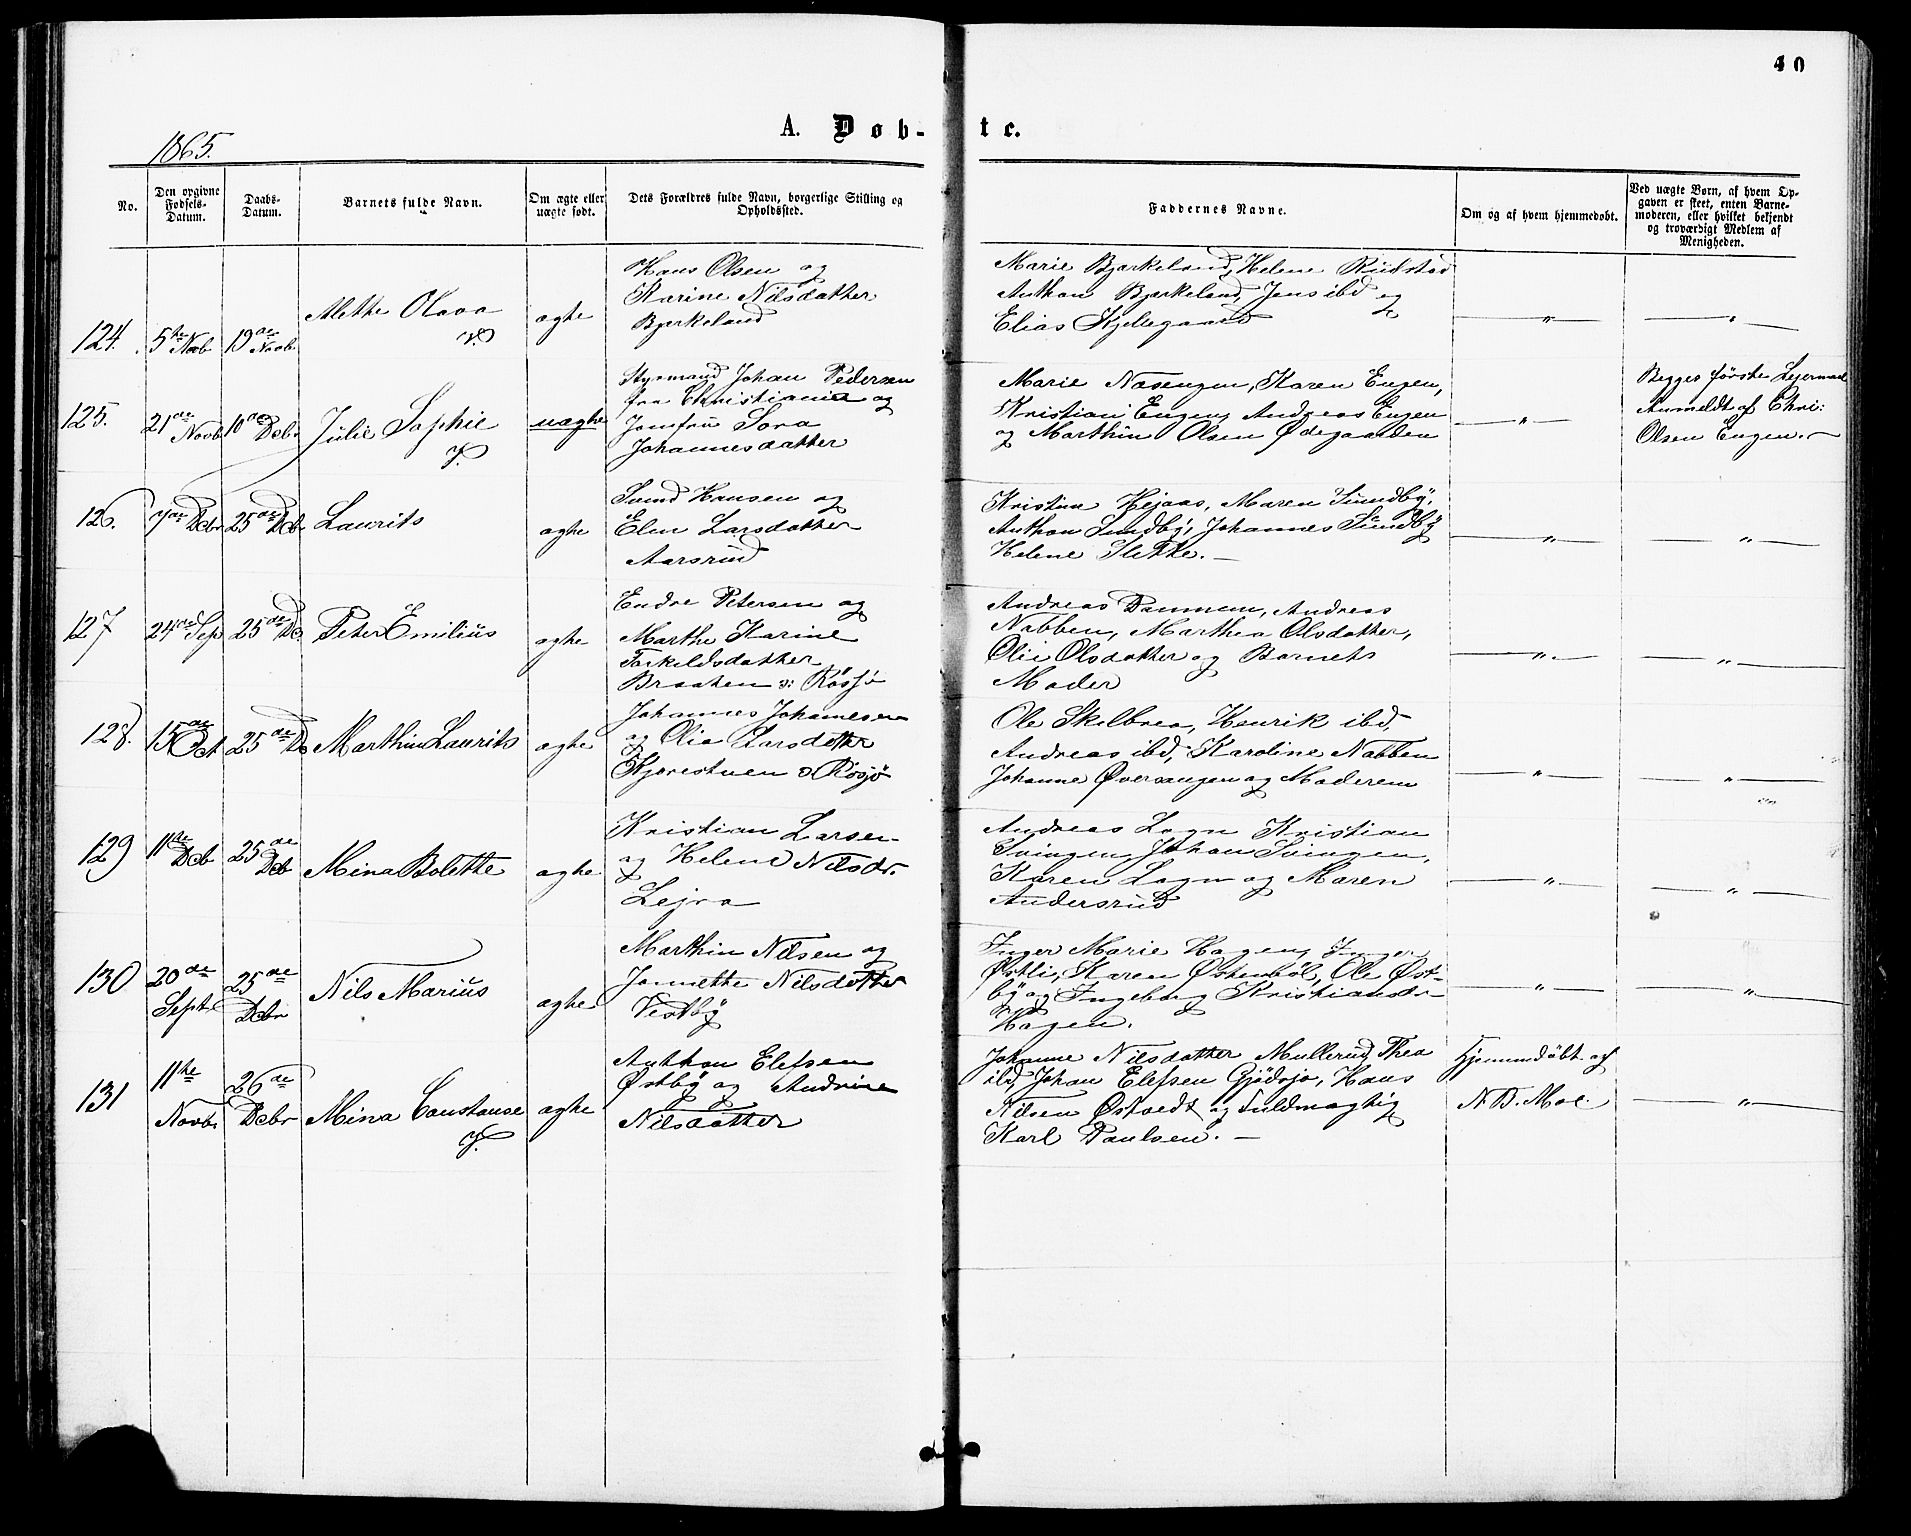 40
A. Døb-te.
1865.
No.
Den opgivne Fødsels-Datum.
Daabs-Datum.
Barnets fulde Navn.
Om ægte eller uægte født.
Dets Forældres fulde Navn, borgerlige Stilling og Opholdssted.
Faddernes Navne.
Om og af hvem hjemmedøbt.
Ved uægte Børn, af hvem Opgaven er skeet, enten Barnemoderen, eller hvilket bekjendt og troværdigt Medlem af Menigheden.
124. 5te Novb 19de Novb
Methe Olava
v.
ægte
Hans Olsen og
Karine Nilsdatter
Bjerkeland
Marie Bjerkeland, Helene Rudstad
Anthon Bjerkeland, Jens ibd og
Elias Kjellegaard
" "
125. 21de Novb 10de Debr
Julie Sophie
v.
uægte
Styrmand Johan Pedersen
fra Christiania og
Jomfru Sora
Johannesdatter
Marie Næsengen, Karen Engen,
Kristian Engen, Andreas Engen
og Marthin Olsen Ødegaarden
"
Begges første Lejermaal
Anmeldt af Chri:
Olsen Engen.
126. 7de Debr 25de Debr
Laurits
ægte
Svend Hansen og
Elen Larsdatter
Aarsrud
Kristine Hejaas, Maren Sundby,
Anthon Sundby, Johannes Sundby
Helene Slette.
" "
127 24de Sep 25de De
Peter Emilius
ægte
Endre Petersen og
Marthe Karine
Torkildsdatter
Braaten v: Røssjø
Andreas Tammen, Andreas
Nabben, Marthea Olsdatter,
Olie Olsdatter og Barnets
Moder
" "
128. 15de Oct 25de De
Marthin Laurits
ægte
Johannes Johannesen
og Olia Larsdatter
Kjærestuen v Røsjø
Ole Skelbrea, Henrik ibd,
Andreas ibd, Karoline Nabben
Johanne Øverengen og Moderen
" "
129 11te Deb 25de Deb
Mina Bolette
ægte
Kristian Larsen
og Helene Nilsdr.
Lejra
Andreas Logn Kristian
Svingen, Johan Svingen,
Karen Logn og Maren
Andersrud
" "
130 20de Sept 25de Debr
Nils Marius
ægte
Marthin Nilsen og
Jannette Nilsdatter
Vestby
Inger Marie Hagen, Inger
Østli, Karen Østenbøl, Ole Øst-
by og Ingeborg Kristiansdr
Hagen.
" "
131 11te Novb. 26de Debr
Mina Constanse
v.
ægte
Anthon Elefsen
Østby og Andrine
Nilsdatter
Johanne Nilsdatter Mullerud, Thea
ibd, Johan Elefsen Gjødsjø, Hans
Nilsen Østvedt og Fuldmægtig
Karl Paulsen.
Hjemmedøbt af
N D. Moe.
"